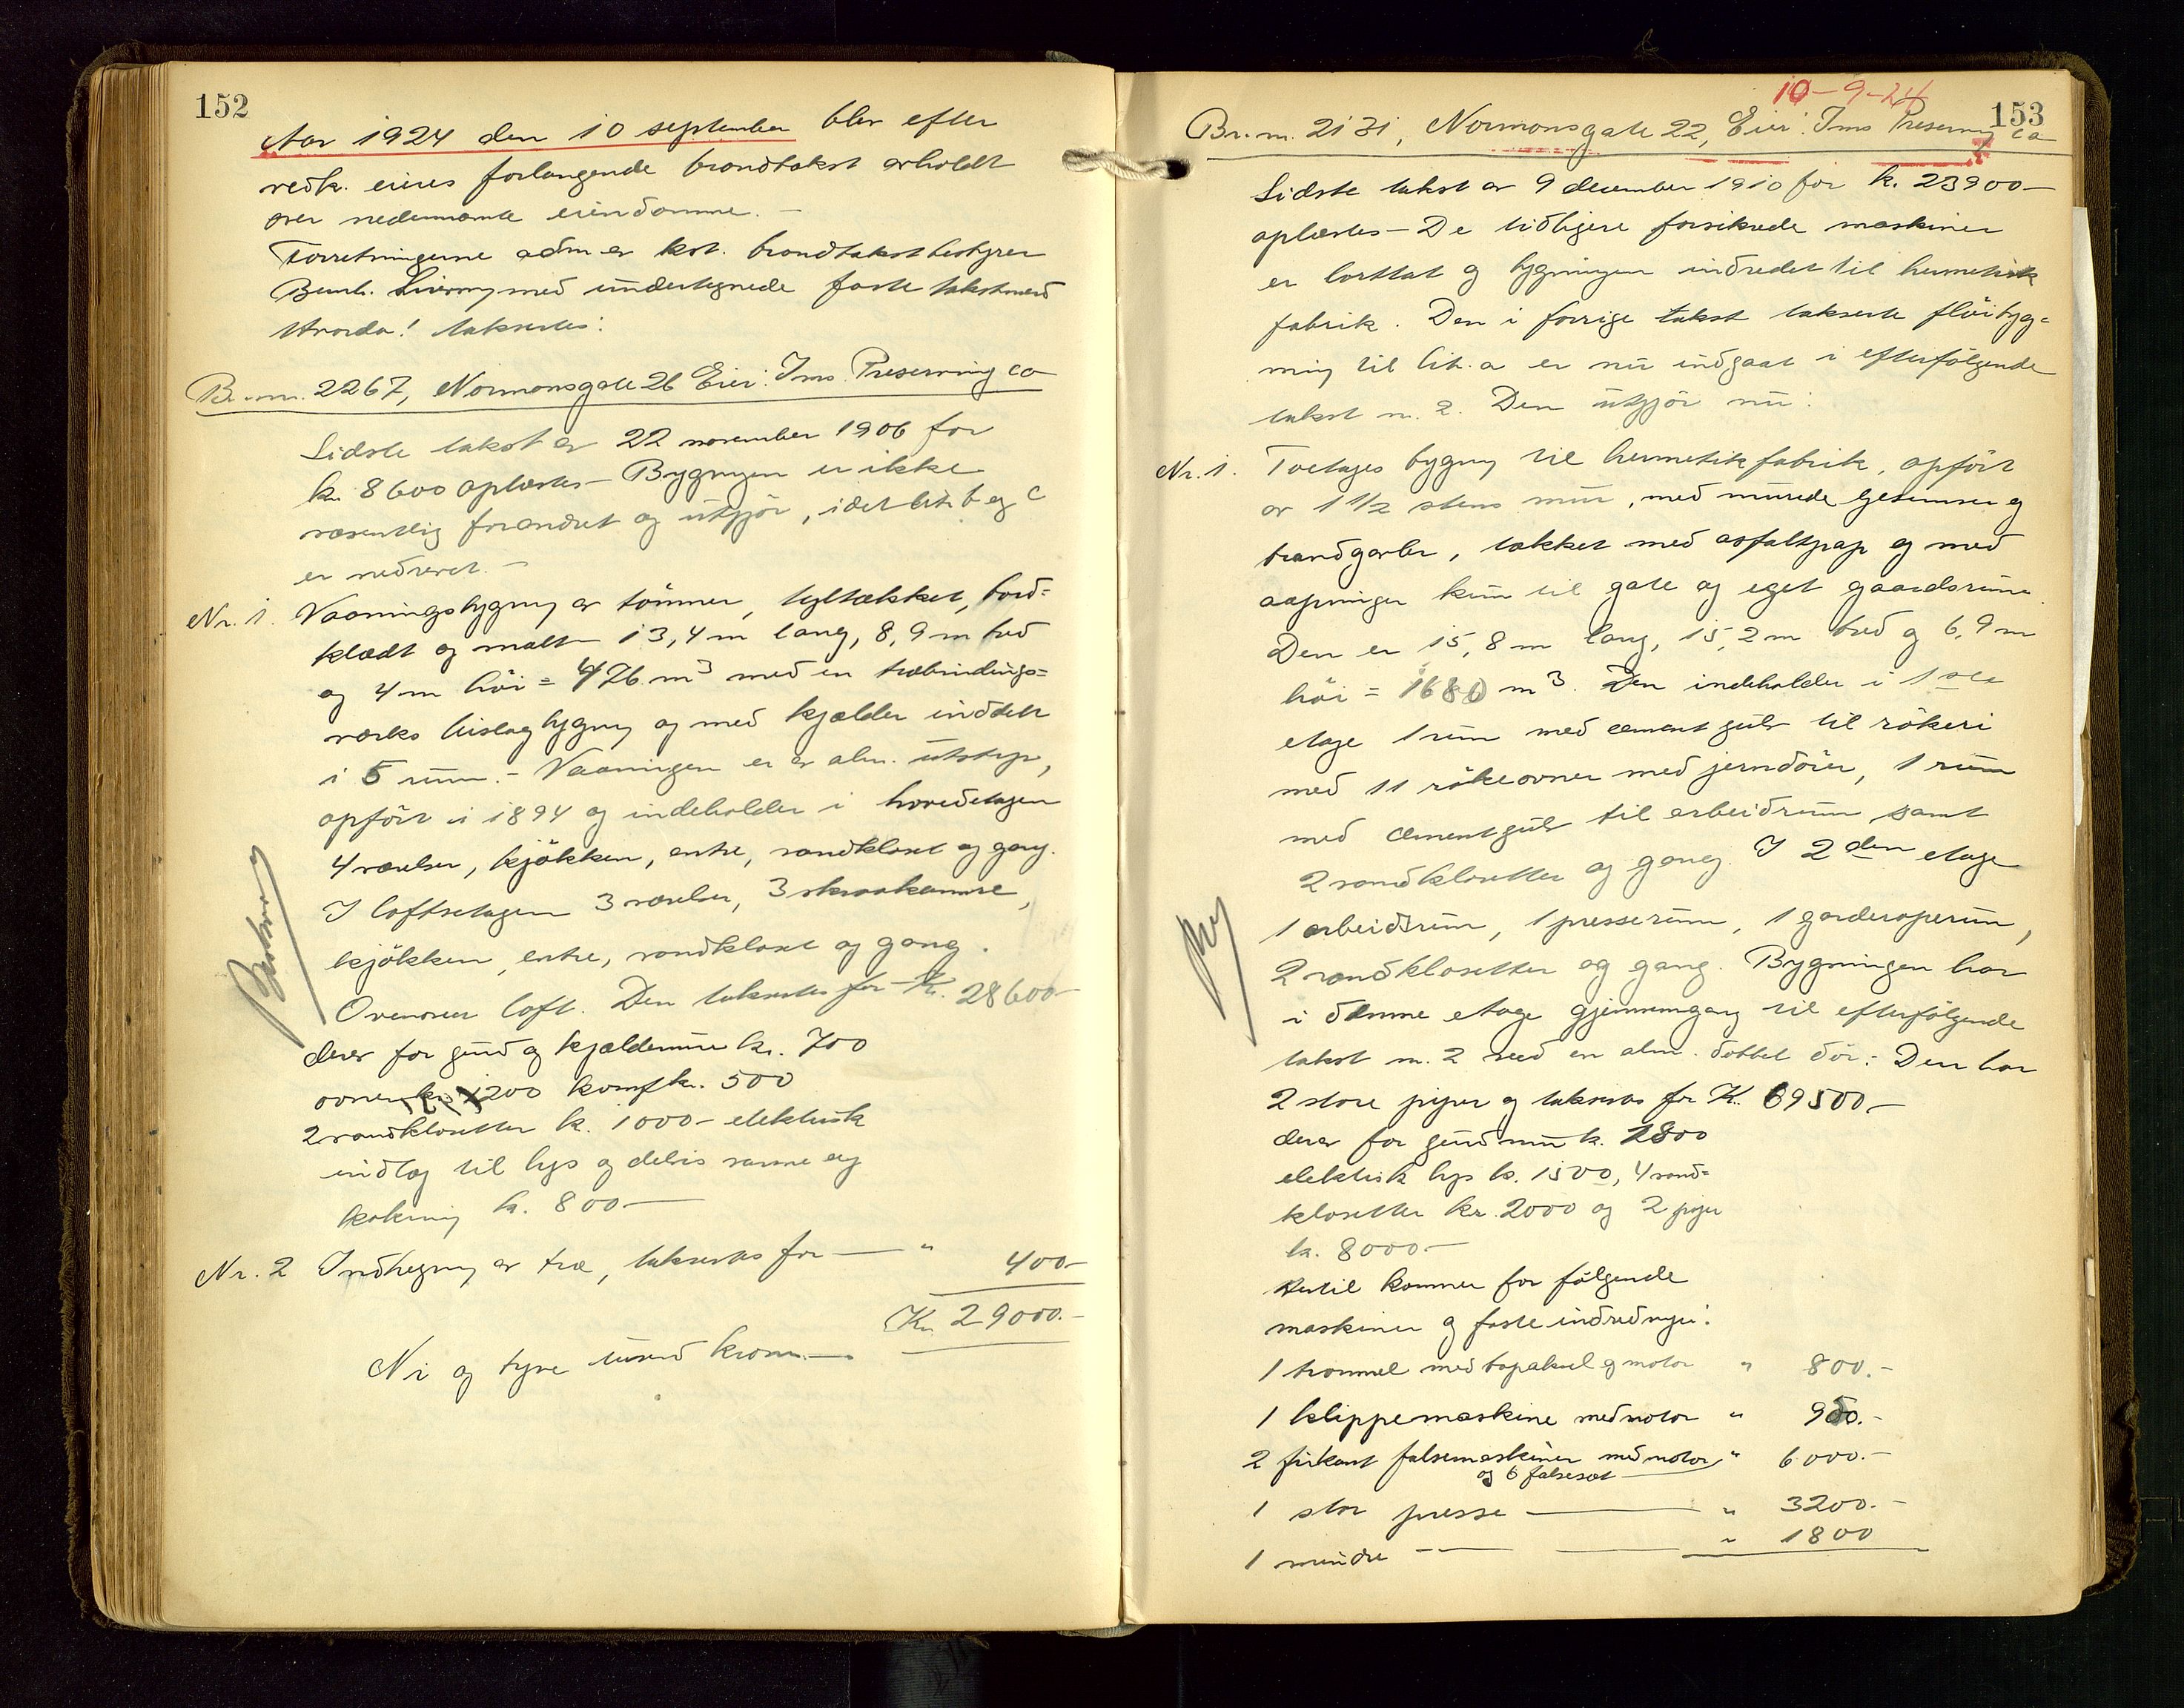 152
Aar 1924 den 10 september blev efter
vedk. eieres forlangende brandtakst avholdt
over nedennævnte eiendomme. -
Forretningerne adm. av kst. brandtakstbestyrer
med undertegnede faste takstmænd
Hvorda! takseredes:
Br. nr. 2267, Normansgate 26 Eier: Ims Preserving co
Lidste takst av 22 november 1906 for
kr. 8600 oplæstes - Bygningen er ikke
væsentlig forandret og utgjör, idet lit. b og c
er nedrevet. -
Nr. 1. Vaaningsbygning av tömmer, tegltækket, bord-
klædt og malt 13,4 m lang, 8,9 m bred
og 4 m höi = 476 m³ med en træbindings-
verks bislagbygning og med kjælder inddelt
i 5 rum. - Vaaningen er av alm. utstyr,
opfört i 1894 og indeholder i hovedetagen
4 værelser, kjökken, entre, vandkloset og gang.
I loftsetagen 3 værelser, 3 skraakamre,
kjökken, entre, vandkloset og gang.
Ovenover loft. Den takseres for Kr. 28600-
derav for grund og kjældermur kr. 700
ovner kr. 1200 komf. kr. 500
2 vandklosetter k. 1000 - elektrisk
indlæg til lys og delvis varme og
kokning kr. 800 -
Nr. 2 Indhegning av træ, takseres for — " 400-
Kr. 29000.-
Ni og tyve tusend kroner. —
10-9-24
153
Br. nr. 2131, Normansgate 22, Eier: Ims Preserving co
Lidste takst av 9 december 1910 for k. 23900-
oplæstes - De tidligere forsikrede maskiner
er borttat og bygningen indredet til hermetisk
fabrik. Den i forrige takst takserte flöibyg-
ning til lit. a er nu indgaat i efterfölgende
takst nr. 2. Den utgjör nu:
Nr. 1. Toetages bygning til hermetikfabrik, opfört
av 1 1/2 stens mur, med murede gesimser og
brandgavler, tækket med asfaltpap og med
aapninger kun til gate og eget gaardsrum.
Den er 15,8 m lang, 15,2 m bred og 6,9 m
höi = 1680 m³. Den indeholder i 1ste
etage 1 rum med cementgulv til rökeri
med 11 rökeovner med jerndörer, 1 rum
med cementgulv til arbeidsrum samt
2 vandklosetter og gang. I 2den etage
1 arbeidsrum, 1 presserum, 1 garderoperum,
2 vandklosetter og gang. Bygningen har
i denne etage gjennemgang til efterfölgende
takst nr. 2 med en alm. dobbel dör. Den har
2 store piper og takseres for K. 69500.-
derav for grundmur k. 2800
elektrisk lys k. 1500, 4 vand-
klosetter kr. 2000 og 2 piper
kr. 8000.-
Hertil kommer for fölgende
maskiner og faste indredninger:
1 trommel med og motor " 800.-
1 klippemaskine med motor " 900.-
2 firkant falsemaskiner med motor " 6000.-
og 6 falsesæt
1 stor presse — " 3200.-
1 mindre — — " 1800